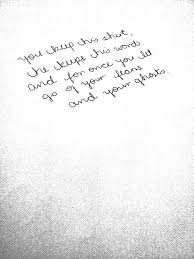 you keep his shirt,
he keeps his word.
and for once you let
go of your fears
and your ghosts.